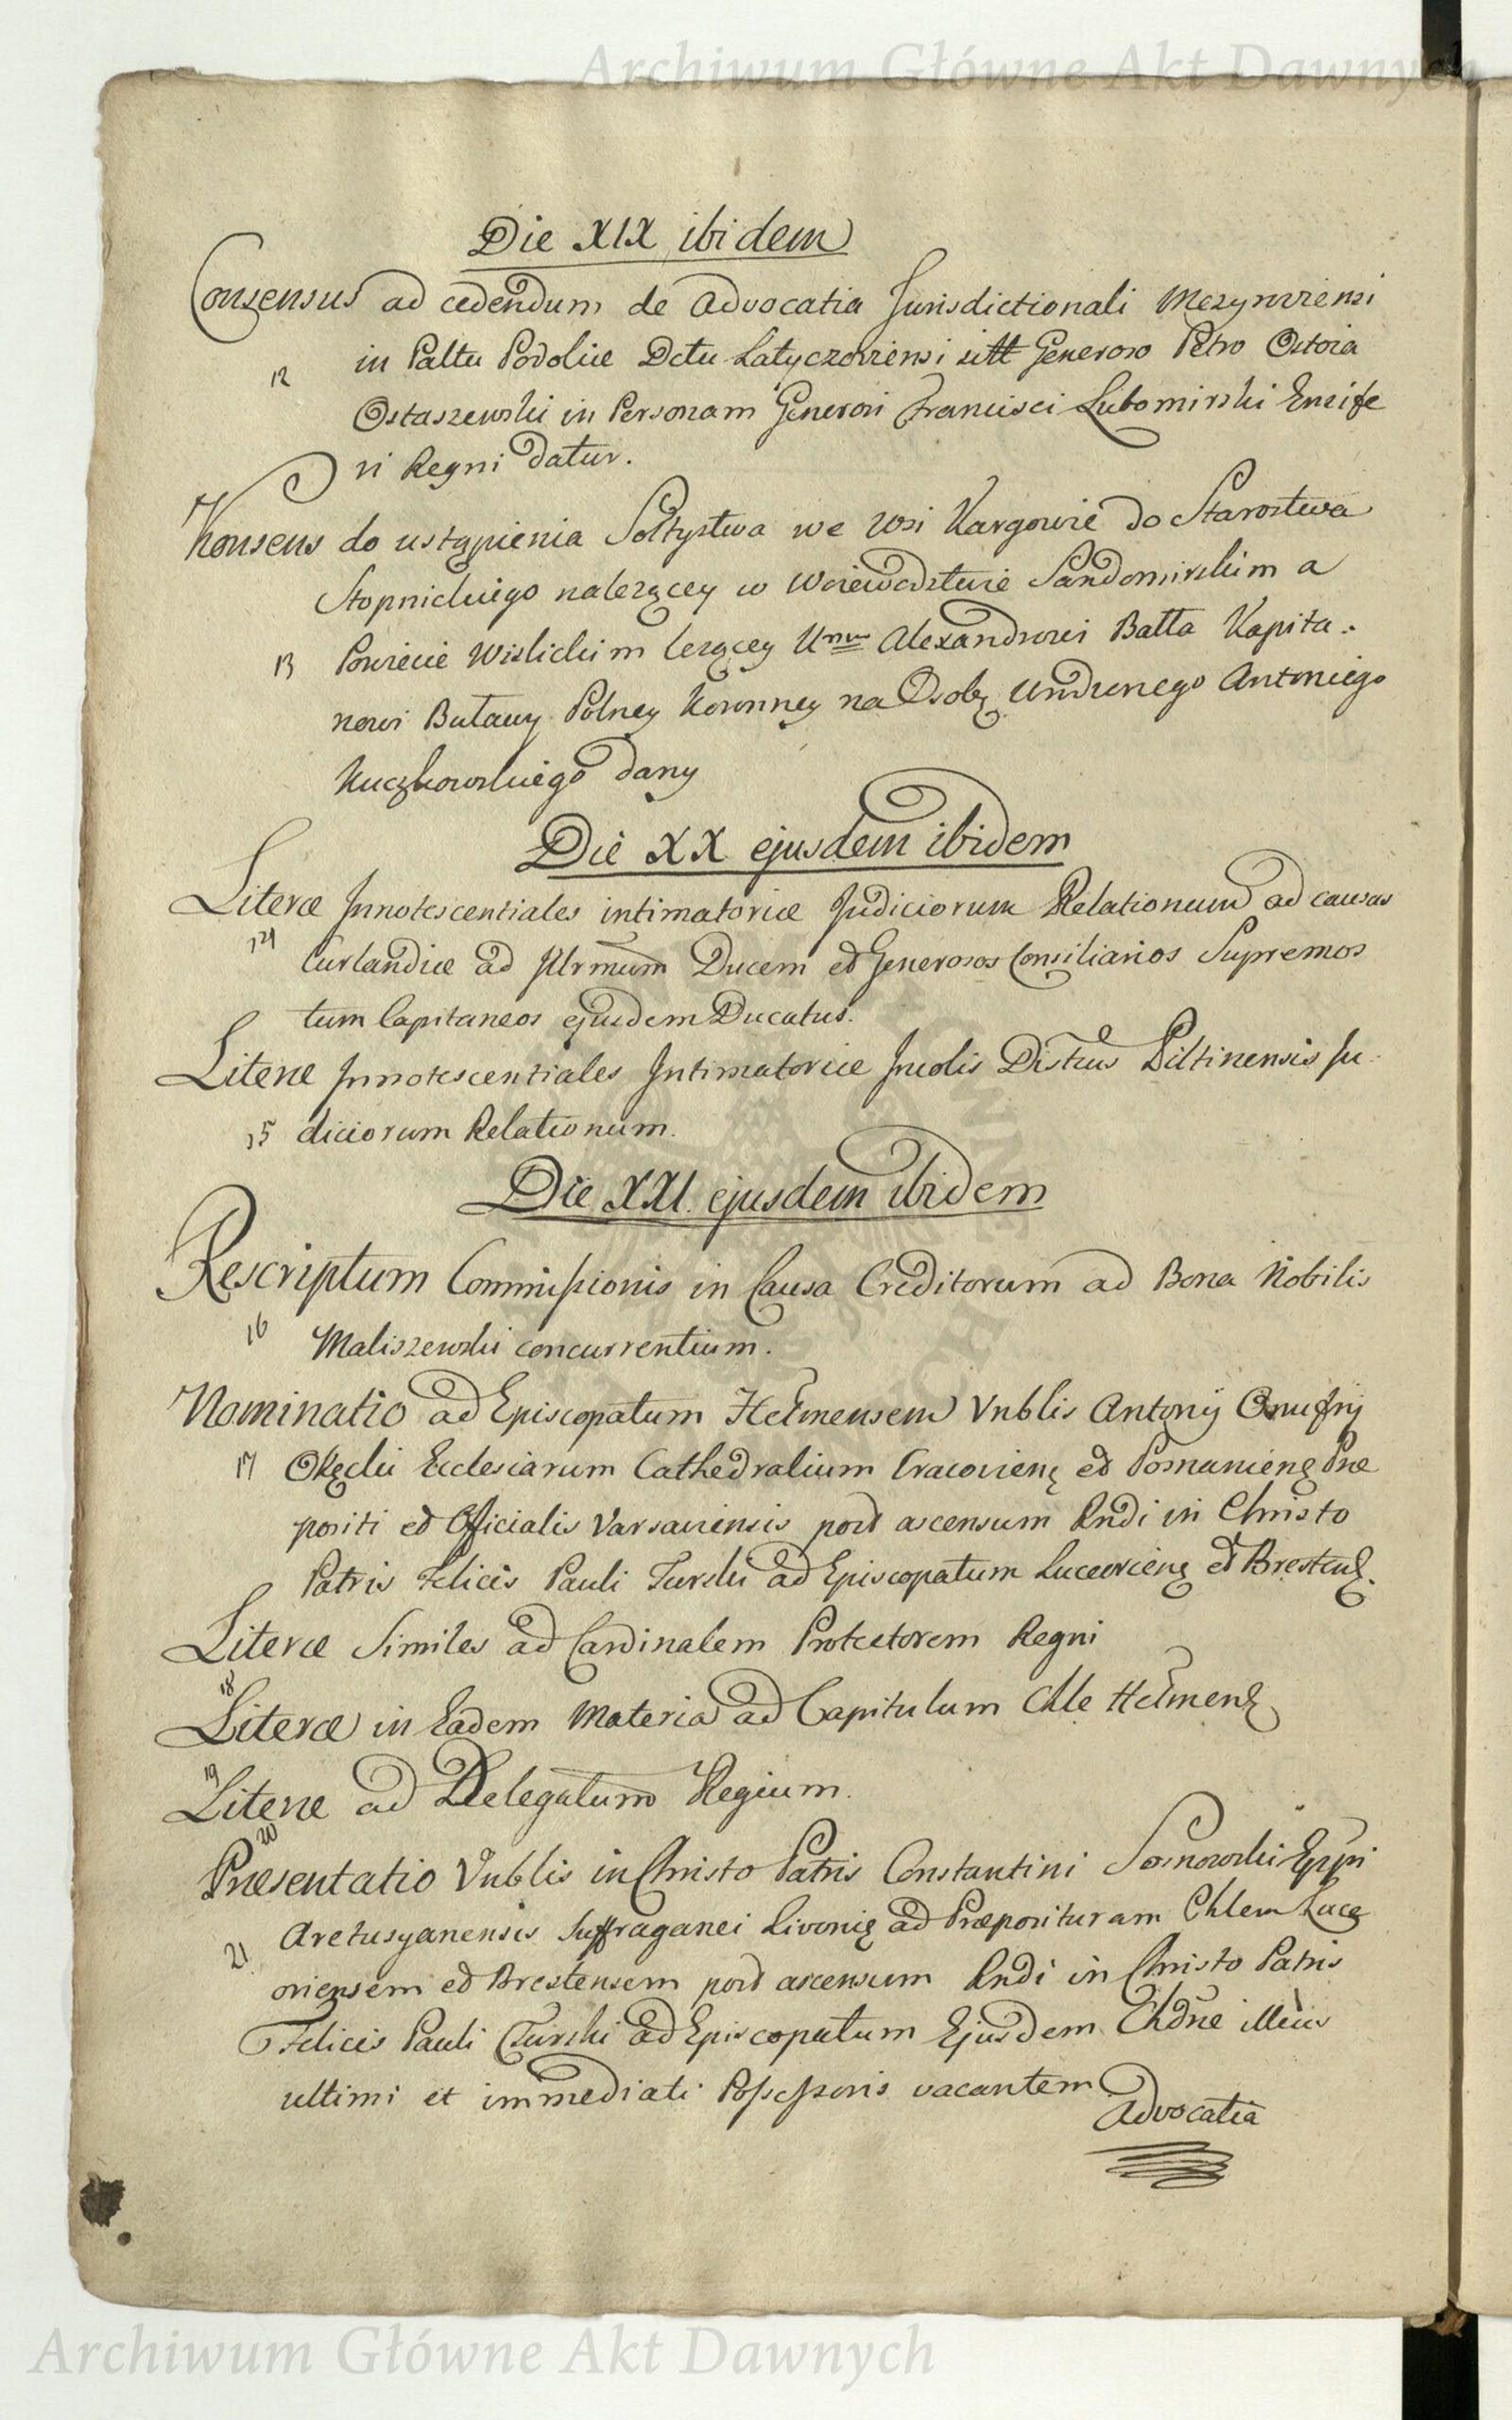 Archiwum Główne Akt Dawnych
Die XIX ibidem
Consensus ad cedendum de Advocatia Jurisdictionali Mezyroviensi
12 in Paltu Podoliæ Dctu Latyczoviensi sitt Generoso Petro Ostoia
Ostaszewski in Personam Generosi Francisci Lubomirski Ensife
ri Regni datur.
Konsens do ustąpienia Sołtystwa we Wsi Kargowie do Starostwa
Stopnickiego nalezącey w Woiewodztwie Sandomirskim a
13 Powiecie Wislickim lezącey Alexandrowi Batta Kapita.
nowi Buławy Polney Koronney na Osobę Antoniego
Kuczkowskiego dany
Die XX ejusdem ibidem
Literæ Innotescentiales intimatoriæ Judiciorum Relationum ad causas
14 Curlandiæ ad Illrmum Ducem et Generosos Consiliarios Supremos
tum Capitaneos ejusdem Ducatus.
Literæ Innotescentiales Intimatoriæ Incolis Districtus Piltinensis Ju.
15 diciorum Relationum.
Die XXI. ejusdem ibidem
Rescriptum Commissionis in Causa Creditorum ad Bona Nobilis
16 Maliszewski concurrentium.
Nominatio ad Episcopatum Hełmensem Vnblis Antonij Onufrij
17 Okęcki Ecclesiarum Cathedralium Cracovieną et Posnanieną Præ
positi et Officialis Varsaviensis post ascensum Rndi in Christo
Patris Felicis Pauli Turski ad Episcopatum Luceorieną et Brestenę.
Literæ Similes ad Cardinalem Protectorem Regni
18
Literæ in Eadem Materia ad Capitulum Chle Hełmenę
19
Literæ ad Delegatum Regium.
20
Præsentatio Vnblis in Christo Patris Constantini Sosnowski Eppi
21 Aretusyanensis Suffraganei Livonię ad Præposituram Chlem Luce
oriensem et Brestensem post ascensum Rndi in Christo Patris
Felicis Pauli Turski ad Episcopatum Ejusdem illius
ultimi et immediati Possessoris vacantem
Advocatia
Archiwum Główne Akt Dawnych